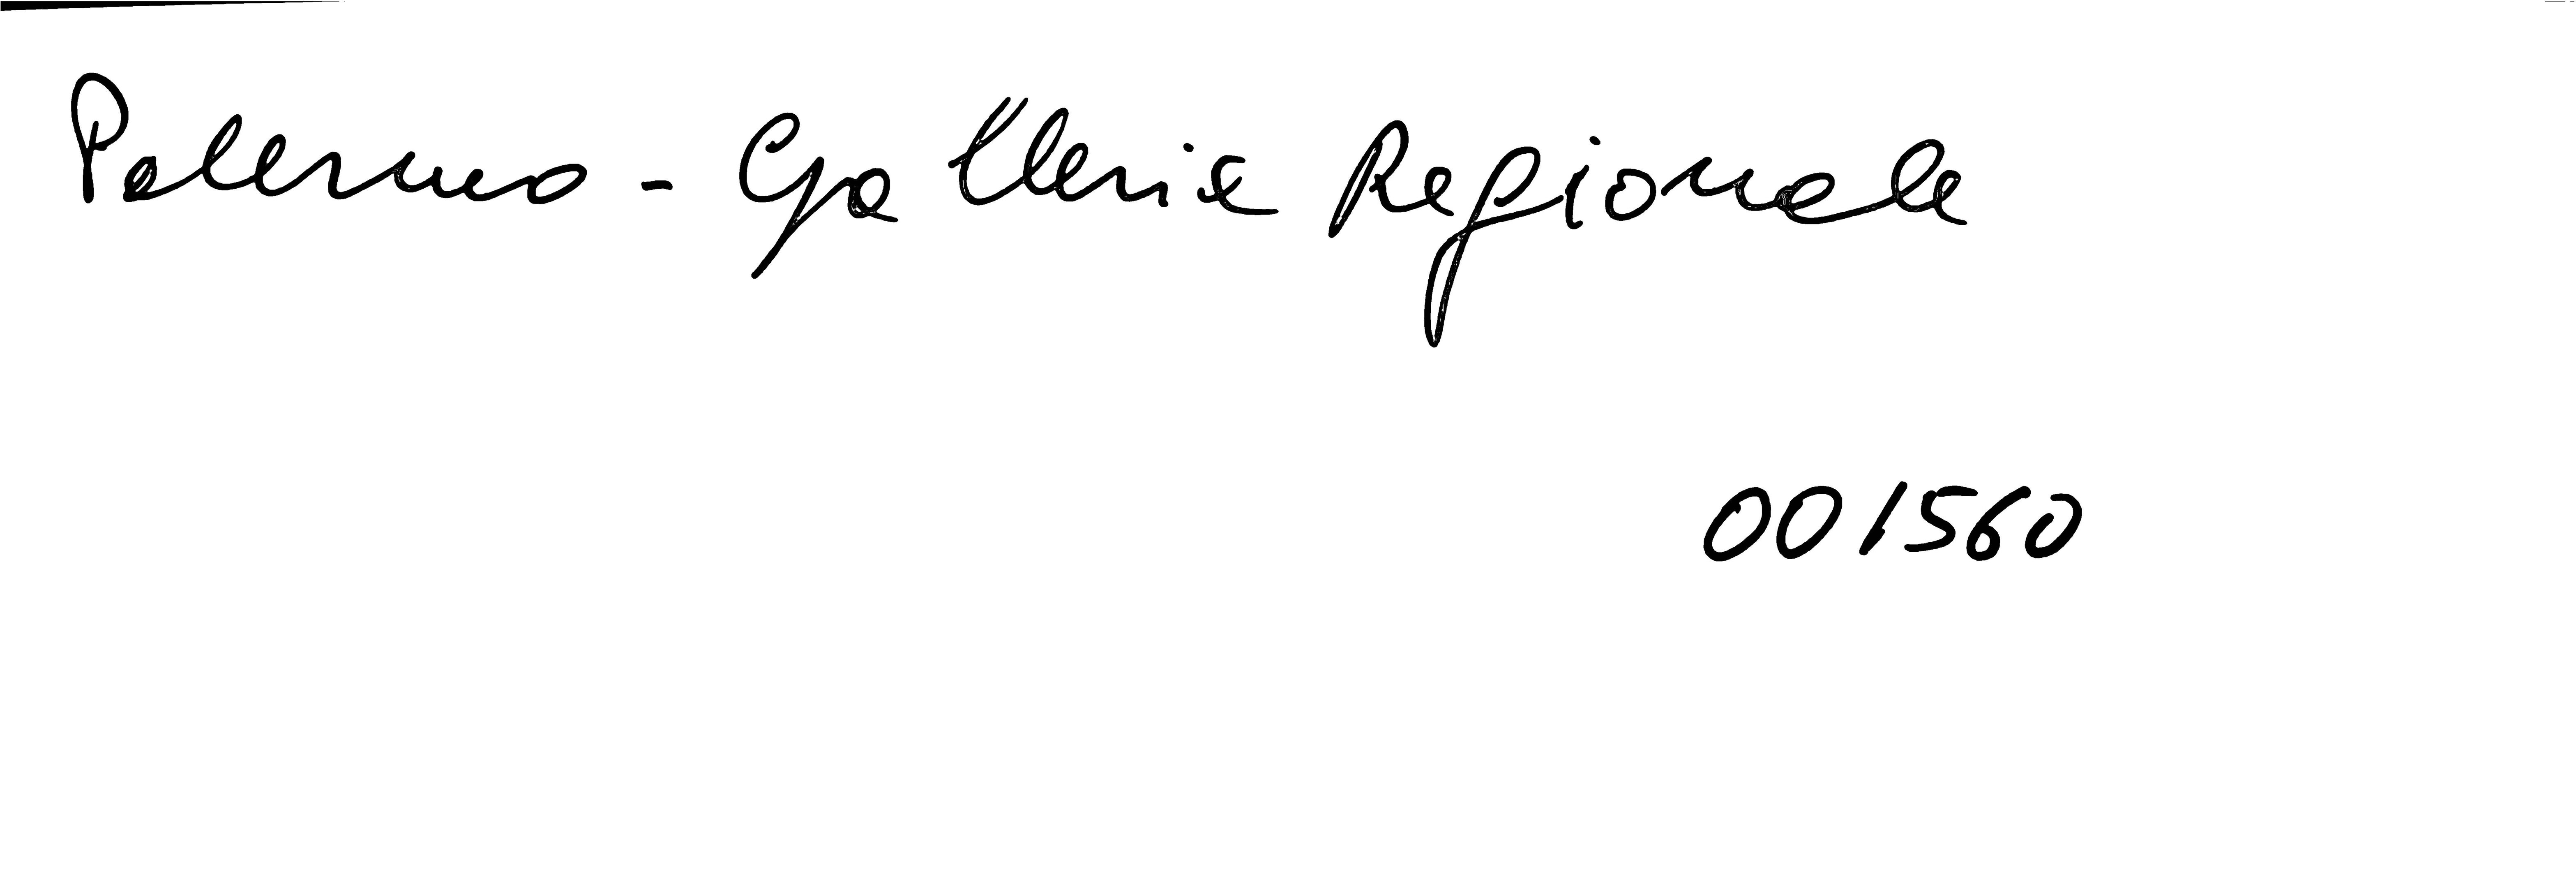 Palermo - Galleria Regionale
001560